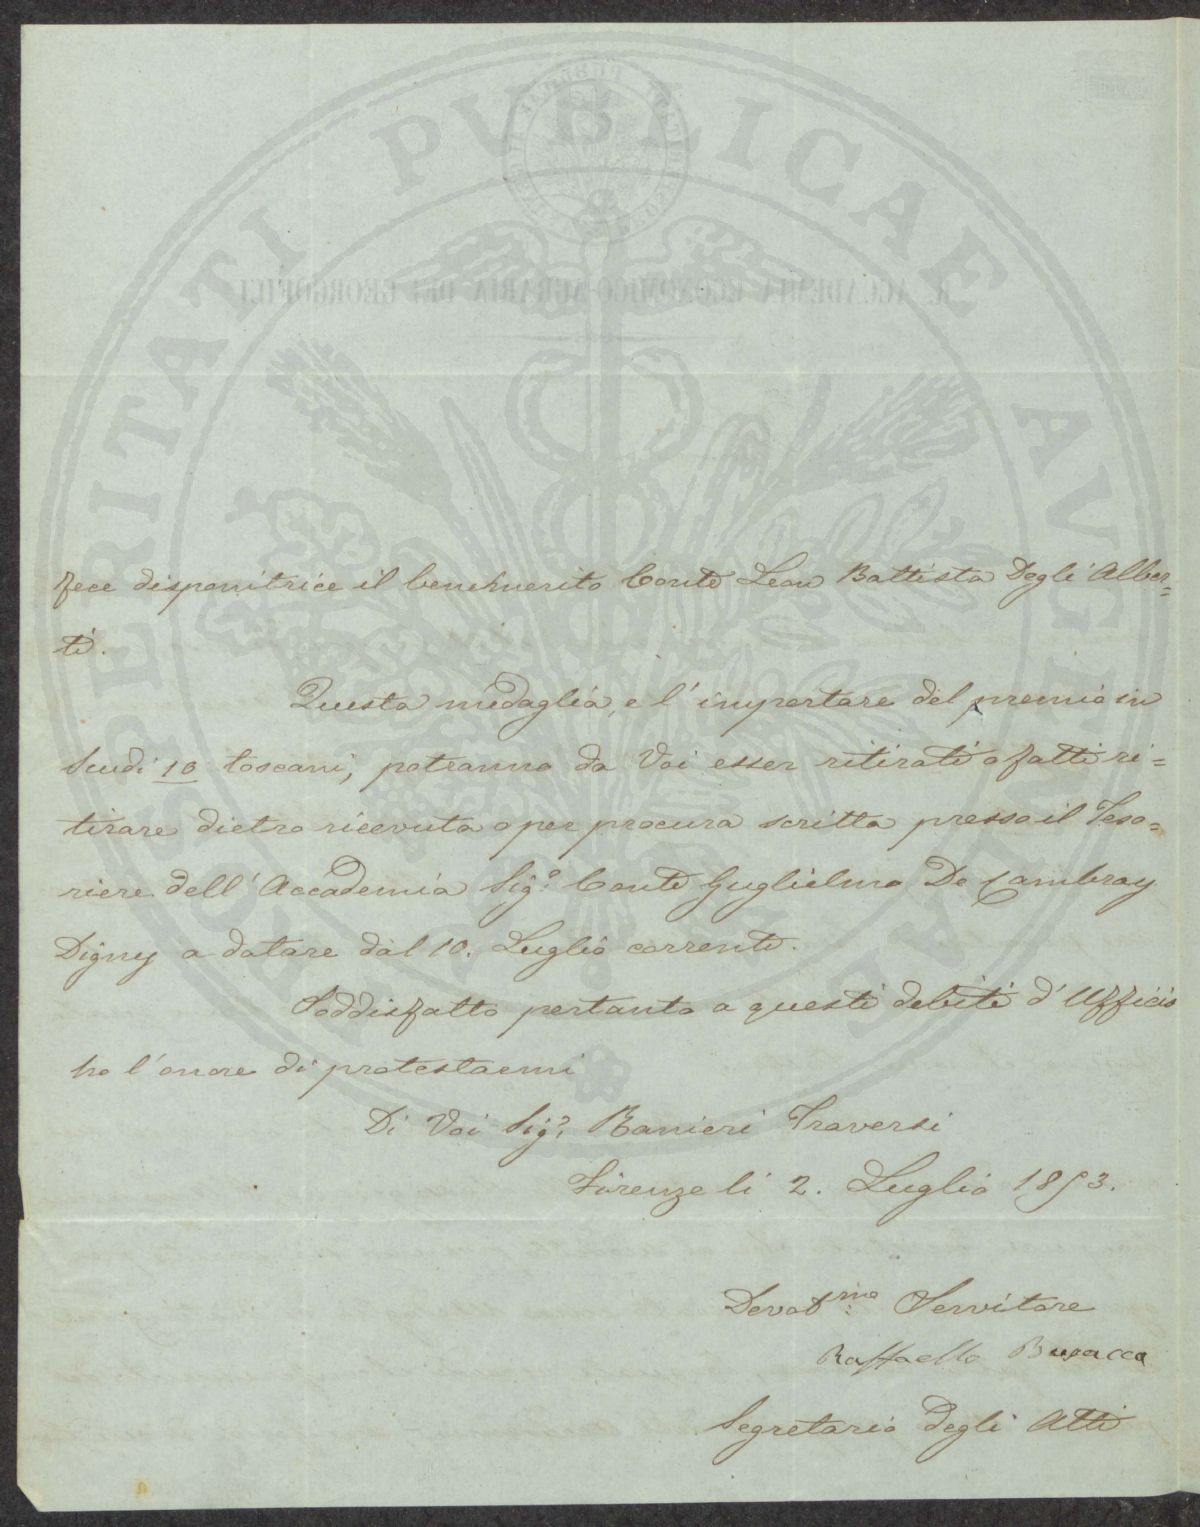 PROSPERITATI PUBLICAE AUGENDAE
R. ACCADEMIA ECONOMICO-AGRARIA DEI GEORGOFILI
fece dispositrice il benemerito Conte Leon Battista Degli Alber=
ti.
Questa medaglia, e l'importare del premio in
Scudi 10 toscani, potranno da Voi esser ritirati o fatti ri=
tirare dietro ricevuta o per procura scritta presso il Teso=
riere dell'Accademia Sig.e Conte Guglielmo De Cambray
Digny a datare dal 10. Luglio corrente.
Soddisfatto pertanto a questi debiti d'Uffizio
ho l'onore di protestarmi
Di Voi Sig.e Ranieri Traversi
Firenze li 2. Luglio 1853.
Devot.mo Servitore
Raffaello Busacca
Segretario degli Atti